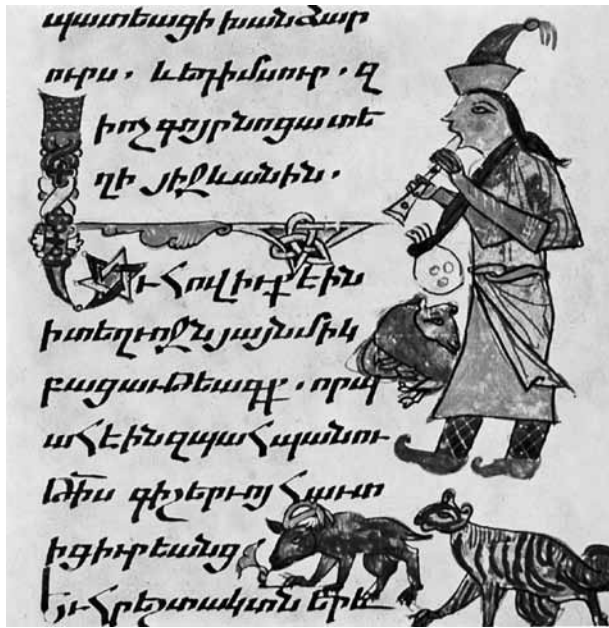 պատեաց ի խանձար
ուրս. և եդ ի մսուր. զ
ի ոչ գոյր նոցա տե
ղի յիջևանին.
Եւ հովիւք էին
ի տեղւոջն յայնմիկ
բացաւթեագք. որ պ
ահէին զպահպանու
թիս գիշերւոյ հաւտ
ից իւրեանց
և հրեշտակ տն երև